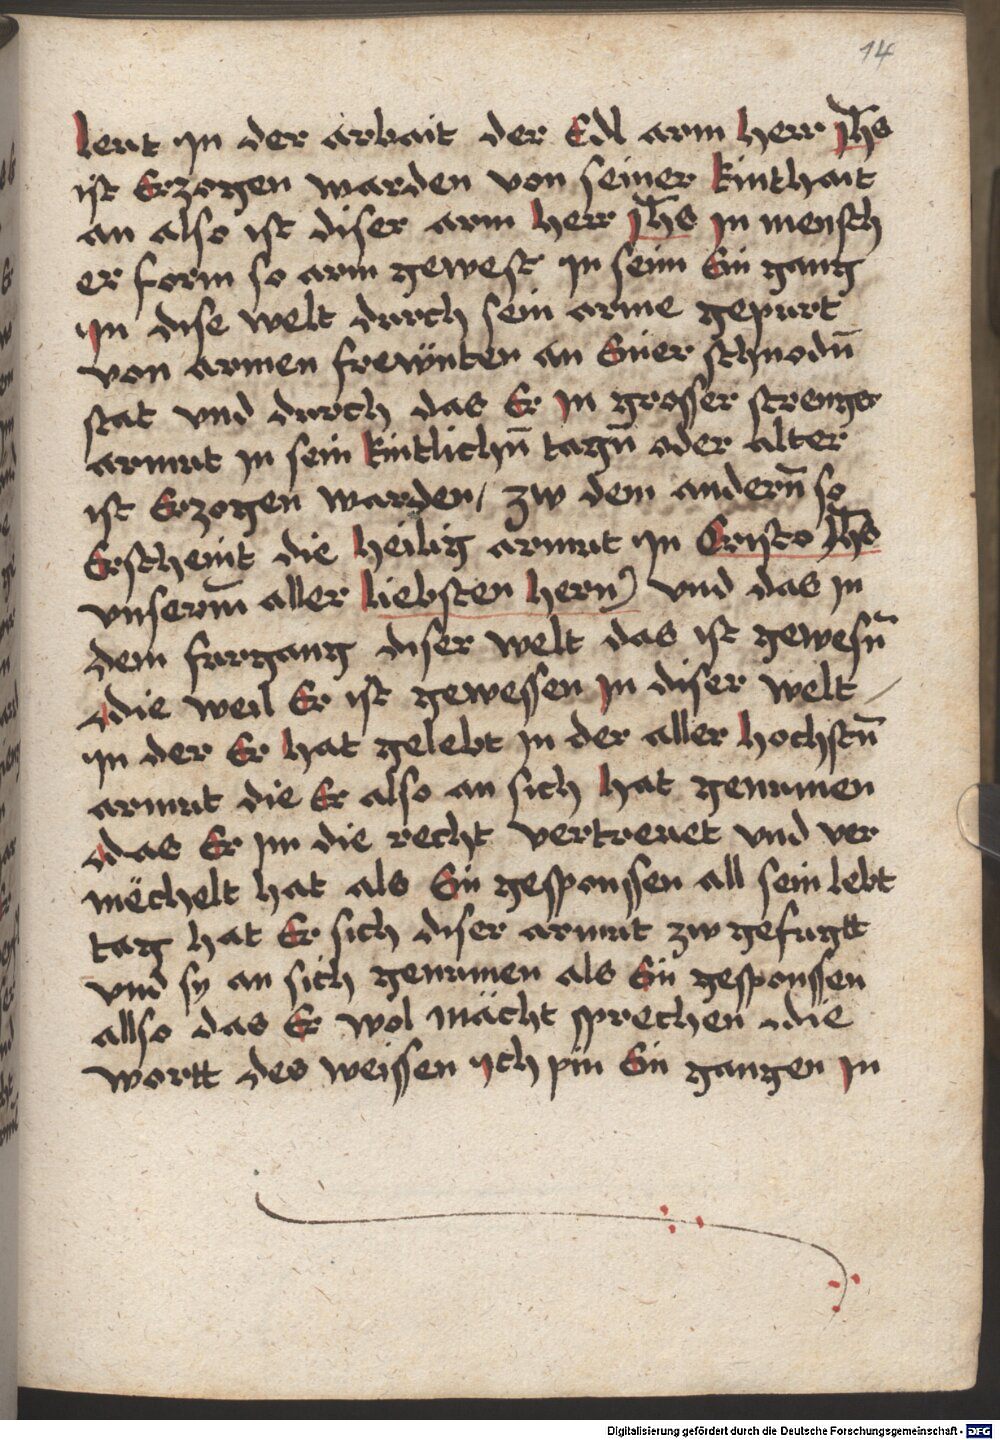 14
leut in der arbait der Edl arm herr jhs
ist Erzogen warden von seiner kinthait
an also ist diser arm herr jhs in mensch
er form so arm gewest in seim Ein gang
in dise welt durch sein arme gepurt
von armen frewnten an Einer schnodn̄
stat vnd durch das Er in grosser strenger
armut in sein kintlichn̄ tagn̄ oder alter
ist Erzogen warden / zw dem andern̄ so
Erscheint die heilig armut in Cristo Jhs
vnserm̄ aller liebsten hern) vnd das in
dem furgang diser welt das ist gewesn̄
die weil Er ist gewessen in diser welt /
in der Er hat gelebt in der aller hochstn̄
armut die Er also an sich hat genumen
das Er im die recht vertreuet vnd ver
mëchelt hat als Ein gesponssen all sein lebt
tag hat Er sich diser armut zw gefugtt
vnd sy an sich genumen als Ein gesponssen
allso das Er wol mächt sprechen die
wortt des weissen ich pin Ein gangen in
Digitalisierung gefördert durch die Deutsche Forschungsgemeinschaft - DFG